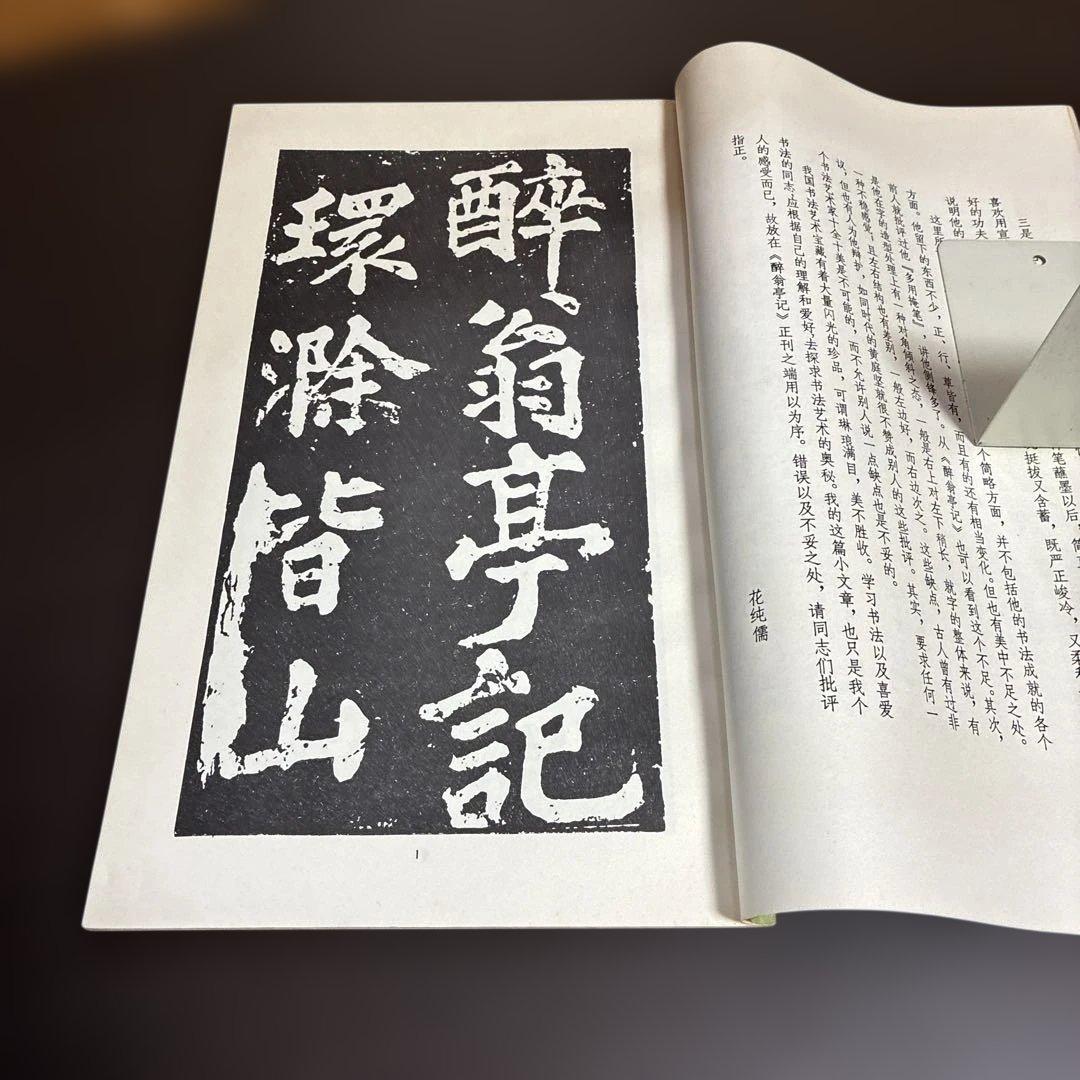 三是
喜欢用宣
好的功夫 笔蘸墨以后，
说明他的 挺拔又含蓄，既严正峻冷，又柔
这里所 个简略方面，并不包括他的书法成就的各个
方面。他留下的东西不少，正、行、草皆有，而且有的还有相当变化。但也有美中不足之处。
前人就批评过他『多用掩笔』，讲他侧锋多了。从《醉翁亭记》也可以看到这个不足。其次，
是他在字的造型处理上有一种对角倾斜之态，一般是右上对左下稍长，就字的整体来说，有
一种不稳感觉；且左右结构也有差别，一般左边好，而右边次之。这些缺点，古人曾有过非
议，但也有人为他辩护，如同时代的黄庭坚就很不赞成别人的这些批评。其实，要求任何一
个书法艺术家十全十美是不可能的，而不允许别人说一点缺点也是不妥的。
我国书法艺术宝藏有着大量闪光的珍品，可谓琳琅满目，美不胜收。学习书法以及喜爱
书法的同志，应根据自己的理解和爱好，去探求书法艺术的奥秘。我的这篇小文章，也只是我个
人的感受而已，故放在《醉翁亭记》正刊之端用以为序。错误以及不妥之处，请同志们批评
指正。
花纯儒
醉翁亭記
環滁皆山
1